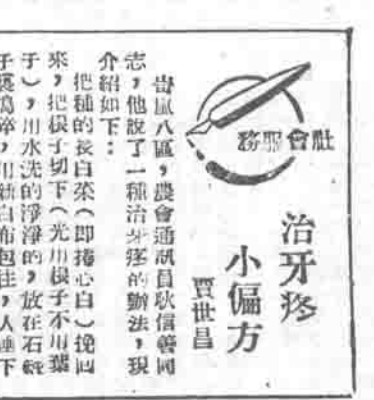 社會服務
治牙疼
小偏方
賈世昌
岢嵐八區,農會通訊員耿信善同
志,他說了一種治牙疼的辦法,現
介紹如下:
把種的長白菜(即捲心白)挽回
來,把根子切下(光用根子不用葉
子),用水洗的淨淨的,放在石
子 搗碎,用 白布包住,人睡下